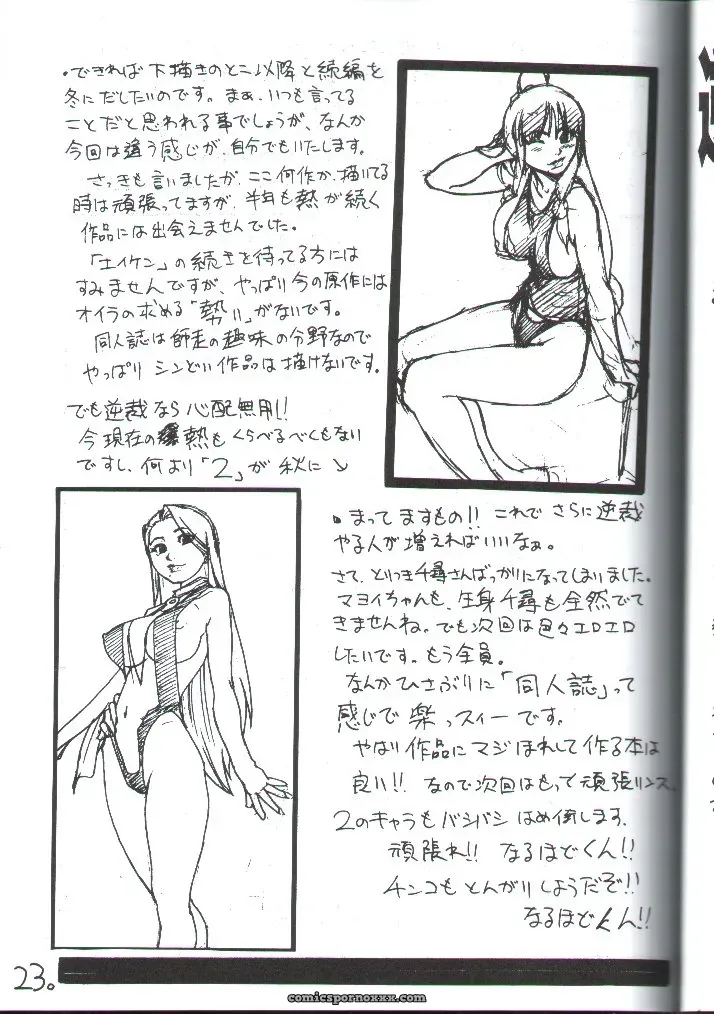 ・できれば下描きのとこ以降と続編を
冬にだしたいのです。まぁ、いつも言ってる
ことだと思われる事でしょうが、なんか
今回は違う感じが、自分でもいたします。
さっきも言いましたが、ここ何作か、描いてる
時は頑張ってますが、半年も熱が続く
作品には出会えませんでした。
「エイケン」の続きを待ってる方には
すみませんですが、やっぱり今の原作には
オイラの求める「勢い」がないです。
同人誌は師走の趣味の分野なので
やっぱり シンどい作品は描けないです。
でも逆裁なら心配無用!!
今現在の熱もくらべるべくもない
ですし、何より「2」が秋に
・まってますもの!! これで さらに逆裁
やる人が増えればいいなぁ。
さて、とりつき千尋さんばっかりになってしまいました。
マヨイちゃんも、生身千尋も全然でて
きませんね。でも次回は色々エロエロ
したいです。もう全員。
なんかひさぶりに「同人誌」って
感じで楽っスィーです。
やはり作品にマジほれして作る本は
良い!! なので次回はもって頑張リンス
2のキャラもバシバシ はめ倒します。
頑張れ!! なるほどくん!!
チンコも とんがりしようだぞ!!
なるほどくん!!
23。
comicspornoxxx.com